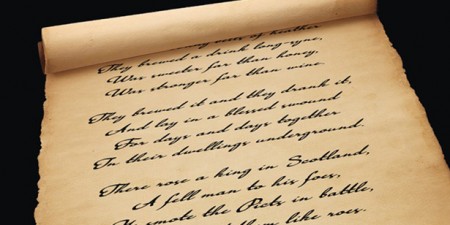 of heather
They brewed a drink long-syne,
Was sweeter far than honey,
Was stronger far than wine.
They brewed it and they drank it,
And lay in a blessed swound
For days and days together
In their dwellings underground.
There rose a king in Scotland,
A fell man to his foes,
He smote the Picts in battle,
them like roes.